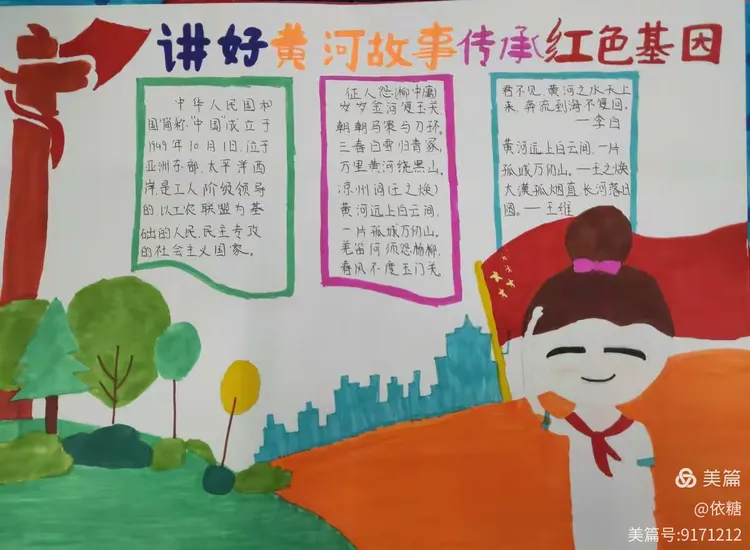 讲好黄河故事传承红色基因
中华人民国和
国"简称"中国"成立于
1949年10月1日,位于
亚洲东部,太平洋西
岸是工人阶级领导
的,以工农联盟为基
础的人民民主专政
的社会主义国家。
征人怨(柳中庸)
岁岁金河复玉关,
朝朝马策与刀环。
三春白雪归青冢,
万里黄河绕黑山。
凉州词(王之焕)
黄河远上白云间,
一片孤城万仞山。
羌笛何须怨杨柳,
春风不度玉门关。
君不见,黄河之水天上
来,奔流到海不复回。
一李白
黄河远上白云间,一片
孤城万仞山。一王之焕
大漠孤烟直,长河落日
圆。一王维
美篇
@依糖
美篇号:9171212